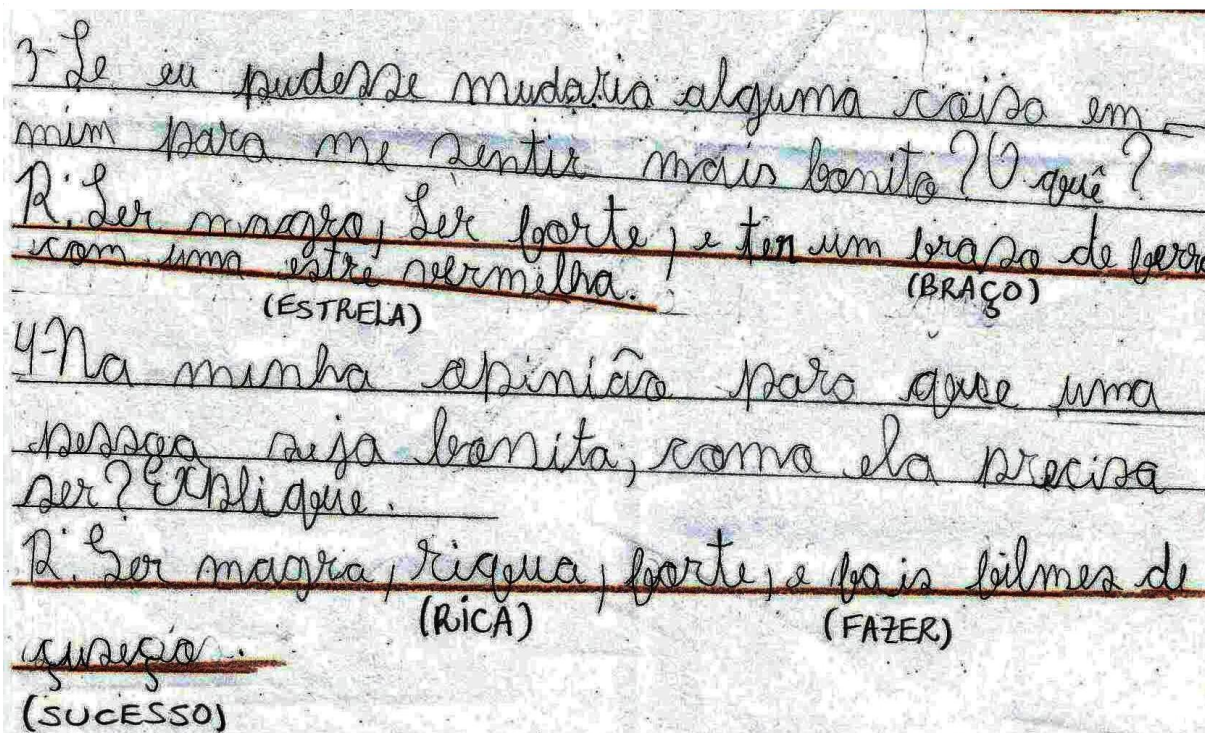 3-Se eu pudesse mudaria alguma coisa em
mim para me sentir mais bonito? O quê?
R: Ser magro, Ser forte, e ter um braso de ferro
com uma estre vermelha.
(ESTRELA) (BRAÇO)
4-Na minha opinião para que uma
pessoa seja bonita, como ela precisa
ser? Explique.
R: Ser magra, riqua, forte, e fais filmes de
(RICA) (FAZER)
çuseçio.
(SUCESSO)